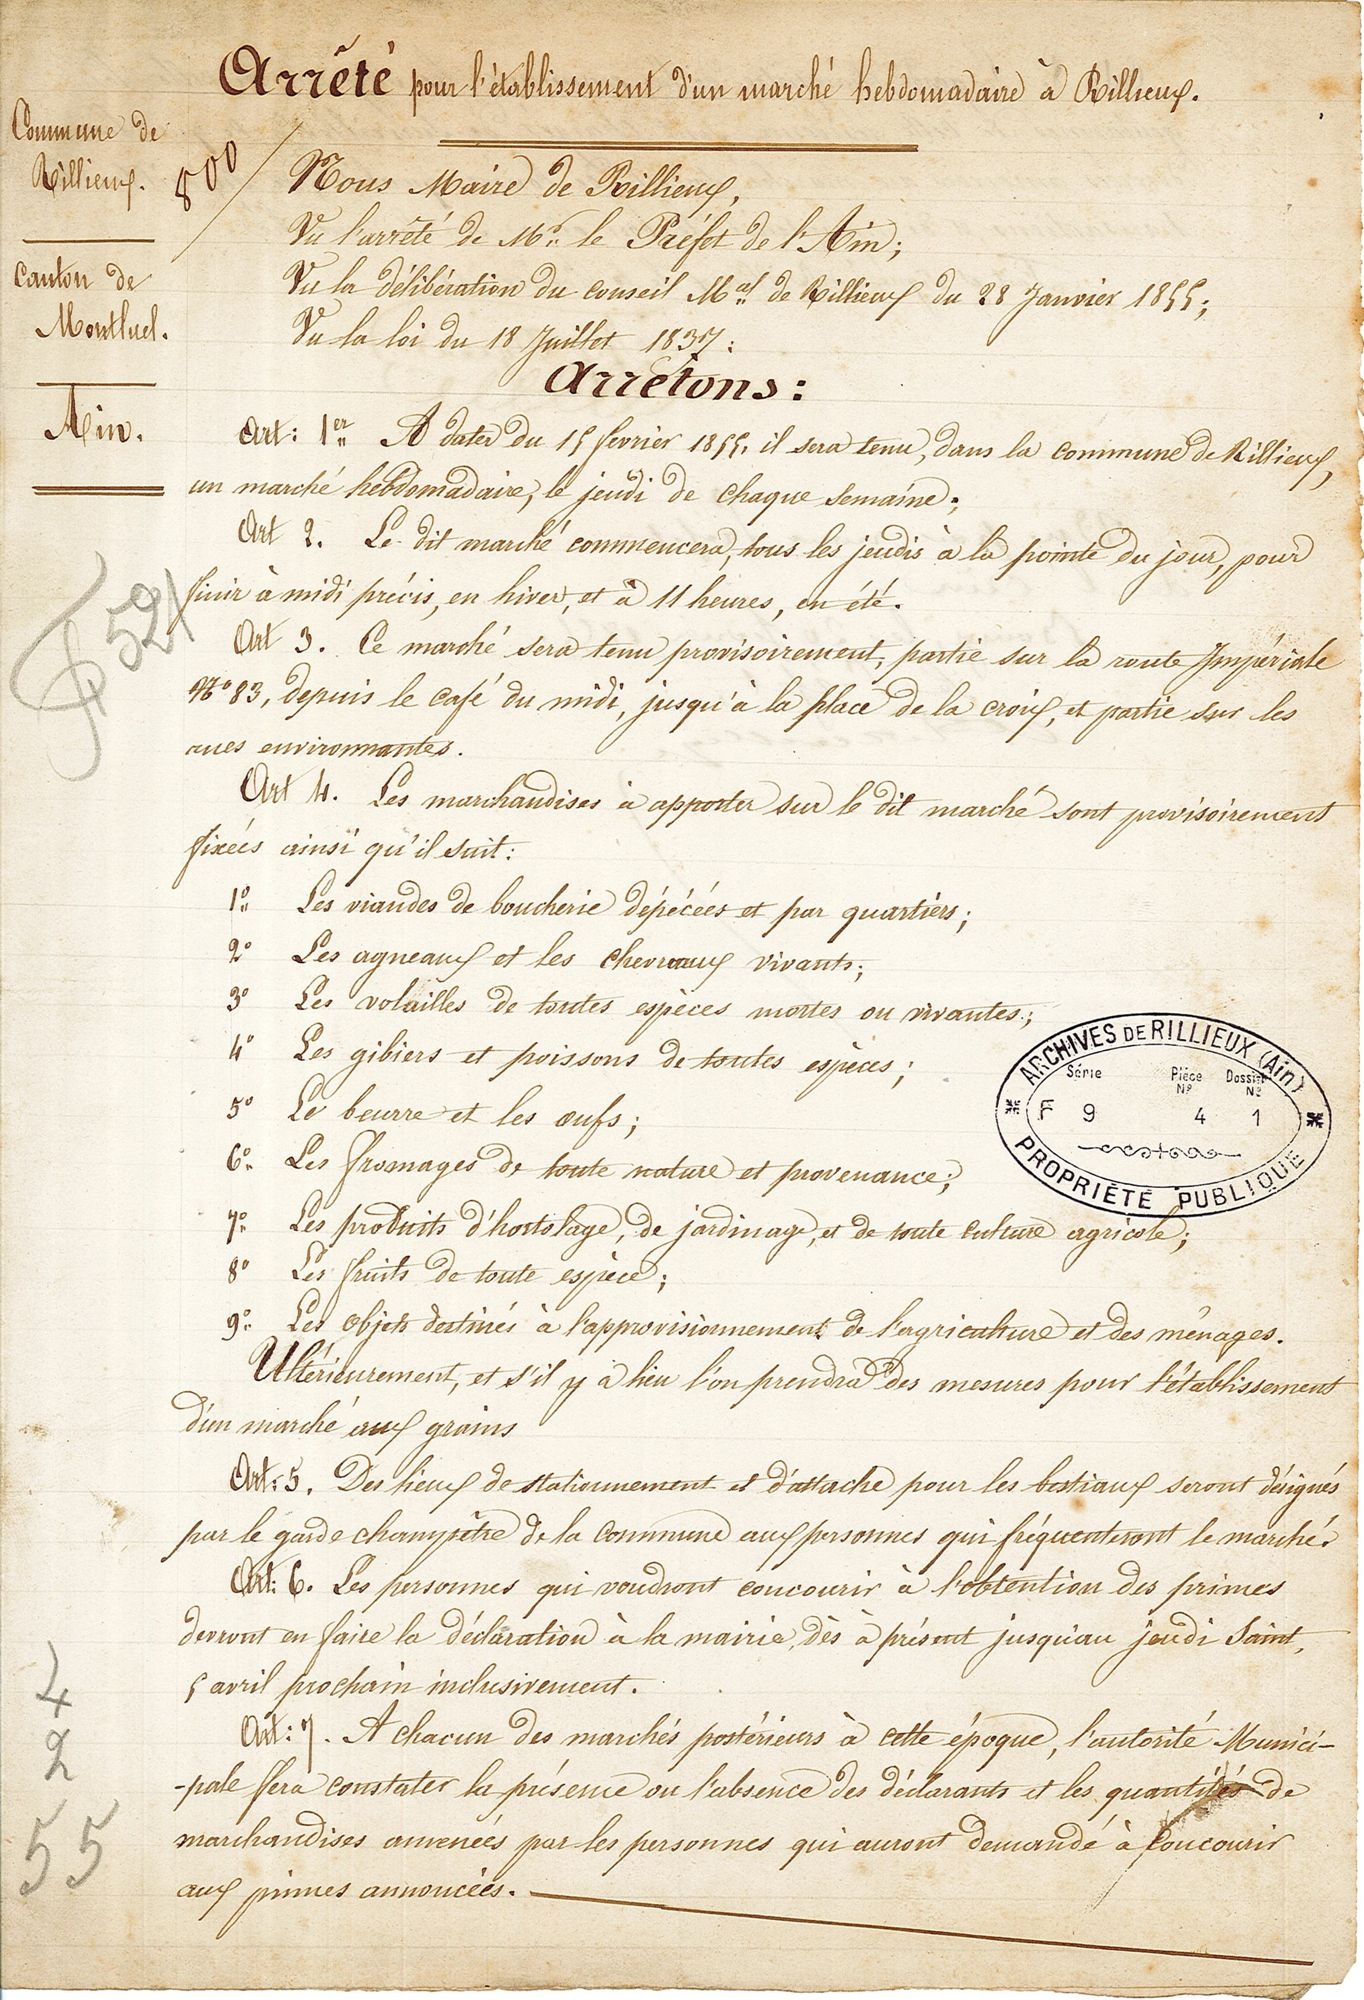 Arrêté pour l'établissement d'un marché hebdomadaire à Rillieux.
Commune de
Rillieux.
Canton de
Montluel.
Ain.
500
Nous Maire de Rillieux,
Vu l'arrêté de Mr. le Préfet de l'Ain;
Vu la délibération du conseil Mal de Rillieux du 28 Janvier 1855;
Vu la loi du 18 Juillet 1837:
Arrêtons:
Art: 1er A dater du 15 février 1855. il sera tenu, dans la commune de Rillieux,
un marché hebdomadaire, le jeudi de chaque semaine;
Art 2. Le dit marché commencera, tous les jeudis à la pointe du jour, pour
finir à midi précis, en hiver, et à 11 heures, en été.
521
Art 3. Ce marché sera tenu provisoirement, partie sur la route Impériale
No 83, depuis le café du midi, jusqu'à la place de la croix, et partie sur les
rues environnantes.
Art 4. Les marchandises à apporter sur le dit marché sont provisoirement
fixées ainsi qu'il suit:
1o Les viandes de boucherie dépécées et par quartiers;
2o Les agneaux et les chevreaux vivants;
3o Les volailles de toutes espèces mortes ou vivantes;
4o Les gibiers et poissons de toutes espèces;
5o Le beurre et les œufs;
6o Les fromages de toute nature et provenance;
7o Les produits d'hortolage, de jardinage, et de toute culture agricole;
8o Les fruits de toute espèce;
9o Les objets destinés à l'approvisionnement de l'agriculture et des ménages.
Ultérieurement, et s'il y a lieu l'on prendra des mesures pour l'établissement
d'un marché aux grains
Art: 5. Des lieux de stationnement et d'attache pour les bestiaux seront désignés
par le garde champêtre de la commune aux personnes qui fréquenteront le marché.
Art: 6. Les personnes qui voudront concourir à l'obtention des primes
devront en faire la déclaration à la mairie, dès à présent jusqu'au jeudi Saint,
5 avril prochain inclusivement.
Art: 7. A chacun des marchés postérieurs à cette époque, l'autorité Munici-
-pale fera constater la présence ou l'absence des déclarants et les quantités de
marchandises amenées par les personnes qui auront demandé à concourir
aux primes annoncées.
4
2
55
ARCHIVES DE RILLIEUX (Ain)
Série Pièce No Dossier No
F 9 4 1
PROPRIÉTÉ PUBLIQUE